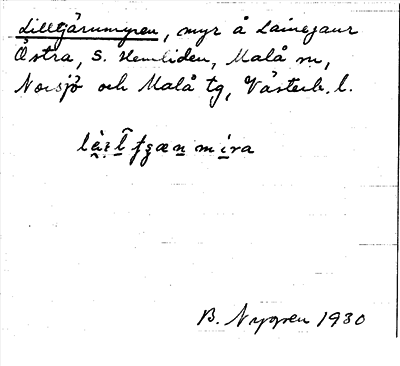 Lilltjärnmyren, myr å Lainejaur
Östra, S. Hemliden, Malå sn,
Norsjö och Malå tg, Västerb. l.
B. Nygren 1930